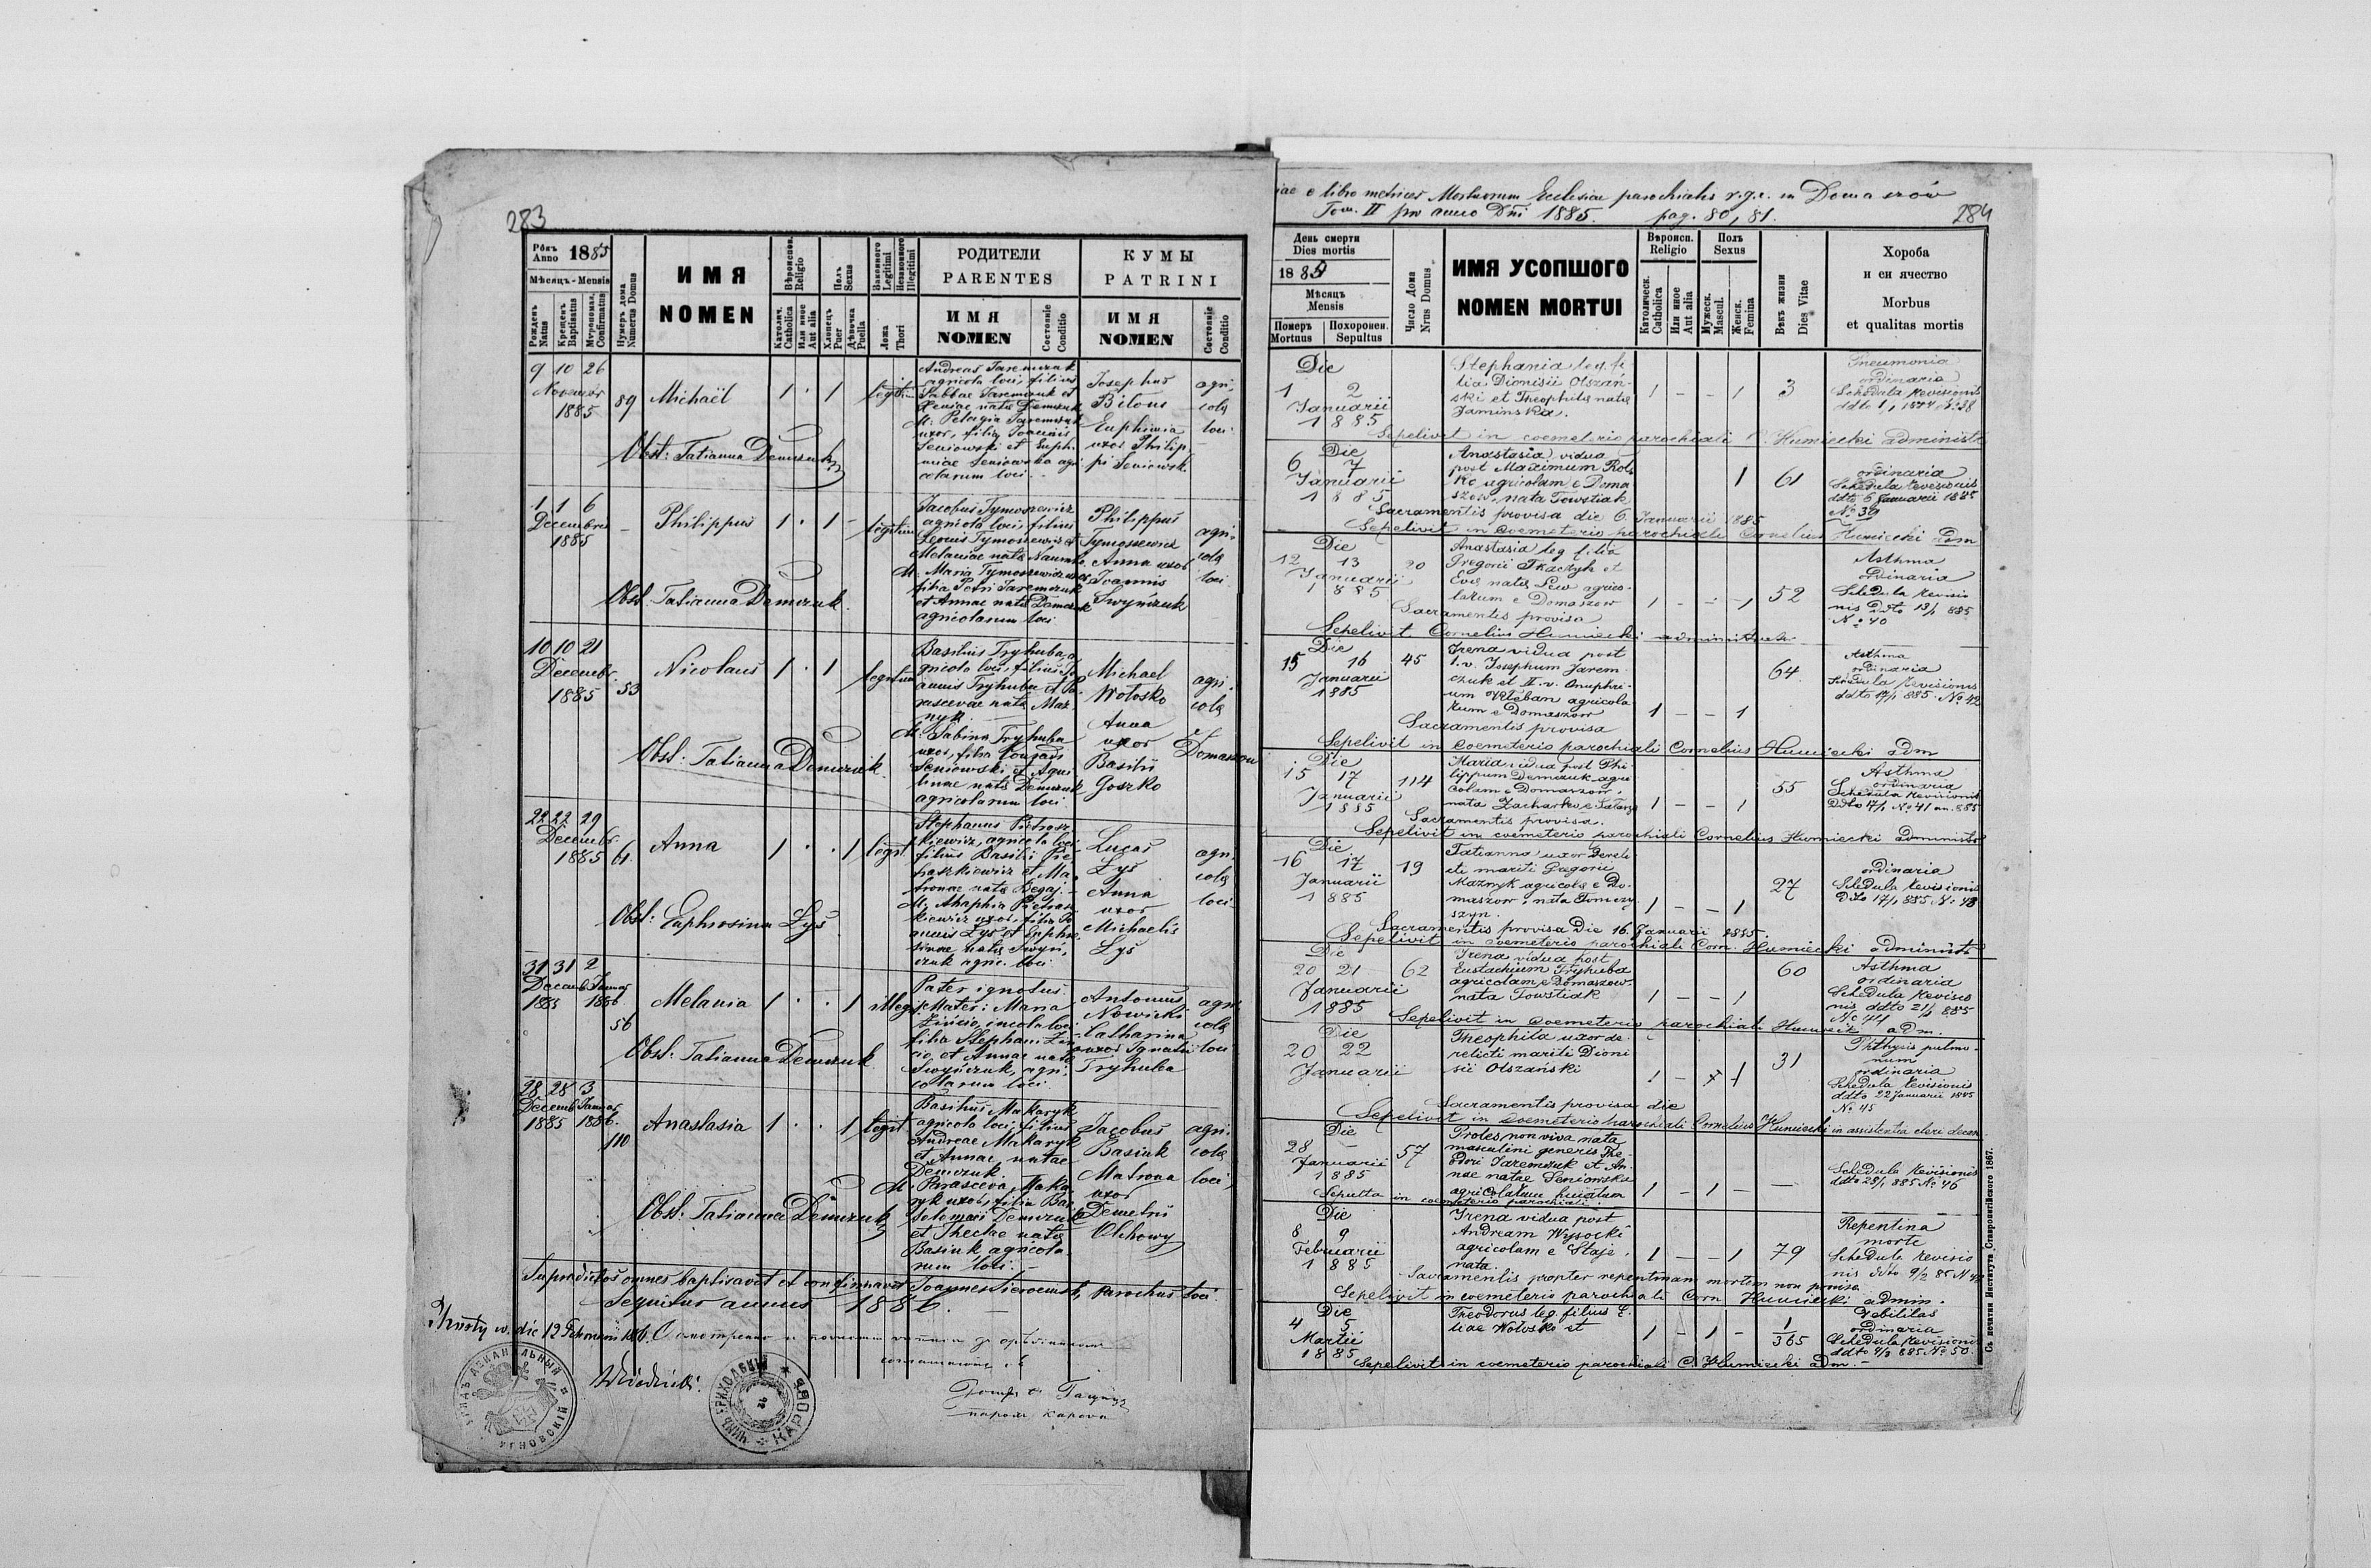 283
Рôкъ Anno 1885
Мѣсяць - Mensis
Рожденъ Natus
Крещенъ Baptisatus
Мvропомаз. Confirmatus
Нумеръ дома Numerus Domus
ИМЯ
NOMEN
Вѣроисповѣд. Religio
Католич. Catholica
Или иное Aut alia
Полъ Sexus
Хлопецъ Puer
Дѣвочка Puella
Законного Legitimi
Незаконного Illegitimi
Ложа Thori
РОДИТЕЛИ
PARENTES
ИМЯ
NOMEN
Состоянiе Conditio
КУМЫ
PATRINI
ИМЯ
NOMEN
Состоянiе Conditio
9 10 26
Novembr
1885
89
Michaël
1 · 1
legitim
Andreas Jaremczuk
agricola loci, filius
Sabbae Jaremczuk et
Xeniae nata Demczuk
M. Pelagia Jaremczuk
uxor, filia Joannis
Seniowski et Euphi-
miae Seniowska agri
colarum loci.
Josephus
Bilous
Euphimia
uxor Philip
pi Seniowski
agri,
colae
loci
Obst: Tatianna Demczuk
1 1 6
Decembris
1885
Philippus
1 · 1 -
legitim
Jacobus Tymoszewicz
agricola loci, filius
Leonis Tymoszewicz et
Melaniae nata Naumko
M. Maria Tymoszewicz uxor
filia Petri Jaremczuk
et Annae nata Demczuk
agricolarum loci
Philippus
Tymoszewicz
Anna uxor
Joannis
Swyńczuk
agri,
colae
loci
Obst. Tatianna Demczuk.
10 10 21
Decembr.
1885
53
Nicolaus
1 · 1
legitim
Basilius Tryhuba, a
gricola loci, filius Jo
annis Tryhuba et Pa
rascevae nata Maz
nyk.
M. Sabina Tryhuba
uxor, filia
Seniowski et Aqui
linae nata Demczuk
agricolarum loci
Michael
Wołosko
Anna
uxor
Basilii
Goszko
agri
colae
ż Domaszow
Obst: Tatianna Demczuk.
22 22 29
Decembr.
1885
61.
Anna
1 · · 1
legit.
Stephanus Pietrasz
kiewicz, agricola loci
filius Basilii Pie
traszkiewicz et Ma
tronae nata Begaj.
M. Ahaphia Pietrasz
kiewicz uxor, filia Jo
annis Lys et Euphro
sinae nata Swyń,
czuk agric. loci
Lucas
Lys
Anna
uxor
Michaelis
Lys
agri,
colae
loci
Obst: Euphrosina Lys
31 31 2
Decemb. Januar
1885 1886
56
Melania
1 · · 1
illegit
Pater ignotus.
Mater: Maria
incola loci
filia Stephani
et Annae nata
Swyńczuk, agri,
colarum loci.
Antonius
Nowicki
Catharina
uxor Ignatii
Tryhuba
agri
colae
loci
Obst: Tatianna Demczuk
28 28 3
Decemb. Januar
1885 1886.
110
Anastasia
1 · · 1
legit
Basilius Makaryk
agricola loci, filius
Andreae Makaryk
et Annae natae
Demczuk.
M. Parasceva Maka
ryk uxor, filia Bar
tolomaei Demczuk
et Theclae nata
Basiuk agricola,
rum loci.
Jacobus
Basiuk
Matrona
uxor
Demetrii
Olchowy
agri,
colae
loci,
Obst: Tatianna Demczuk
Supradictos omnes baptisavit et confirmavit Joannes Sierociński, parochus loci
Sequitur annus 1886.
die 12 Februarii 1886.
УГНОВСКIЙ
КАРОВЪ
e libro metrices Mortuorum Ecclesiae parochialis r.g.c. in Domaszów
Tom. II pro anno Dni 1885. pag. 80, 81.
284
День смерти
Dies mortis
1885
Мѣсяцъ
Mensis
Померъ Mortuus
Похоронен. Sepultus
Число Дома Nrus Domus
ИМЯ УСОПШОГО
NOMEN MORTUI
Вѣроисп. Religio
Католическ. Catholica
Или иное Aut alia
Полъ Sexus
Мужеск. Mascul.
Женск. Femina
Вѣкъ жизни Dies Vitae
Хороба
и еи ячество
Morbus
et qualitas mortis
Die
1 2
Januarii
1885
Stephania leg. fi-
lia Dionisii Olszań-
ski et Theophila nata
Jaminska.
1 - - 1
3
Pneumonia
ordinaria
Schedula revisionis
ddto
Sepelivit in coemeterio parochiali C. Humiecki administr
Die
6 7
Januarii
1885
Anastasia vidua
post Maximum Rol
ko agricolam e Doma
szow, nata Towstiak
1
61
ordinaria
Schedula revisionis
ddto 6 Januarii 1885
No 39
Sacramentis provisa die 6. Januarii 1885
Sepelivit in coemeterio parochiali Cornelius Humiecki adm
Die
12 13
Januarii
1885
20
Anastasia leg filia
Gregorii Tkaczyk et
Eva nata Lew agrico-
larum e Domaszow
1 - - 1
52
Asthma
ordinaria
Schedula revisio
nis Ddto 13/1 885
No 40
Sacramentis provisa
Sepelivit Cornelius Humiecki administrator
Die
15 16
Januarii
1885
45
Irena vidua post
I. v. Josephum Jarem
czuk et II. v. Onuphri-
um Kleban agricola
rum e Domaszow
1 - - 1
64
Asthma
ordinaria
Schedula revisionis
ddto 17/1 885. No 42
Sacramentis provisa
Sepelivit in coemeterio parochiali Cornelius Humiecki adm
Die
15 17
Januarii
1885
114
Maria vidua post Phi-
lippum Demczuk agri
colam e Domaszow,
nata Zacharko e Tatarz
1 - - 1
55
Asthma
ordinaria
Schedula revisionis
Ddto 17/1 No 41 an. 885
Sacramentis provisa.
Sepelivit in coemeterio parochiali Cornelius Humiecki administr
Die
16 17
Januarii
1885
19
Tatianna uxor dereli
cti mariti Gregorii
Maznyk agricolae e Do-
maszow, nata Tomczy
szyn.
1 - - 1
27
ordinaria
Schedula revisionis
Ddto 17/1 885 No 43
Sacramentis provisa Die 16. Januarii 1885.
Sepelivit in coemeterio parochiali Corn. Humiecki administr
Die
20 21
Januarii
1885
62
Irena vidua post
Eustachium Tryhuba
agricolam e Domaszow
nata Towstiak
1 - - 1
60
Asthma
ordinaria
Schedula revisio
nis ddto 21/1 885
No 44
Sepelivit in coemeterio parochiali Humiecki adm.
Die
20 22
Januarii
Theophila uxor de-
relicti mariti Dioni
sii Olszański
1 - 1
31
Phthysis pulmo-
num
ordinaria
Schedula revisionis
ddto 22 Januarii 1885
No 45
Sacramentis provisa die
Sepelivit in coemeterio parochiali Cornelius Humiecki in assistentia cleri decan.
Die
28 —
Januarii
1885
57
Proles non viva nata
masculini generis The-
odori Jaremczuk et An-
nae natae Seniowska
agricolarum huiatum
1 - 1 — —
Schedula revisionis
ddto 28/1 885 No 46
Sepulta in coemeterio parochiali.
Die
8 9
Februarii
1885
Irena vidua post
Andream Wysocki
agricolam e Staje,
nata.
1 — - 1
79
Repentina
morte
Schedula revisio
nis ddto 9/2 85 N
Sacramentis propter repentinam mortem non provisa
Sepelivit in coemeterio parochiali Corn Humiecki admin.
Die
4 5
Martii
1885
Theodorus leg. filius E-
liae Wołosko et
1 - 1 -
1/365
Debilitas
ordinaria
Schedula revisionis
ddto 4/3 885 No 50.
Sepelivit in coemeterio parochiali C. Humiecki adm.
Съ печатни Института Ставропигiйского 1867.